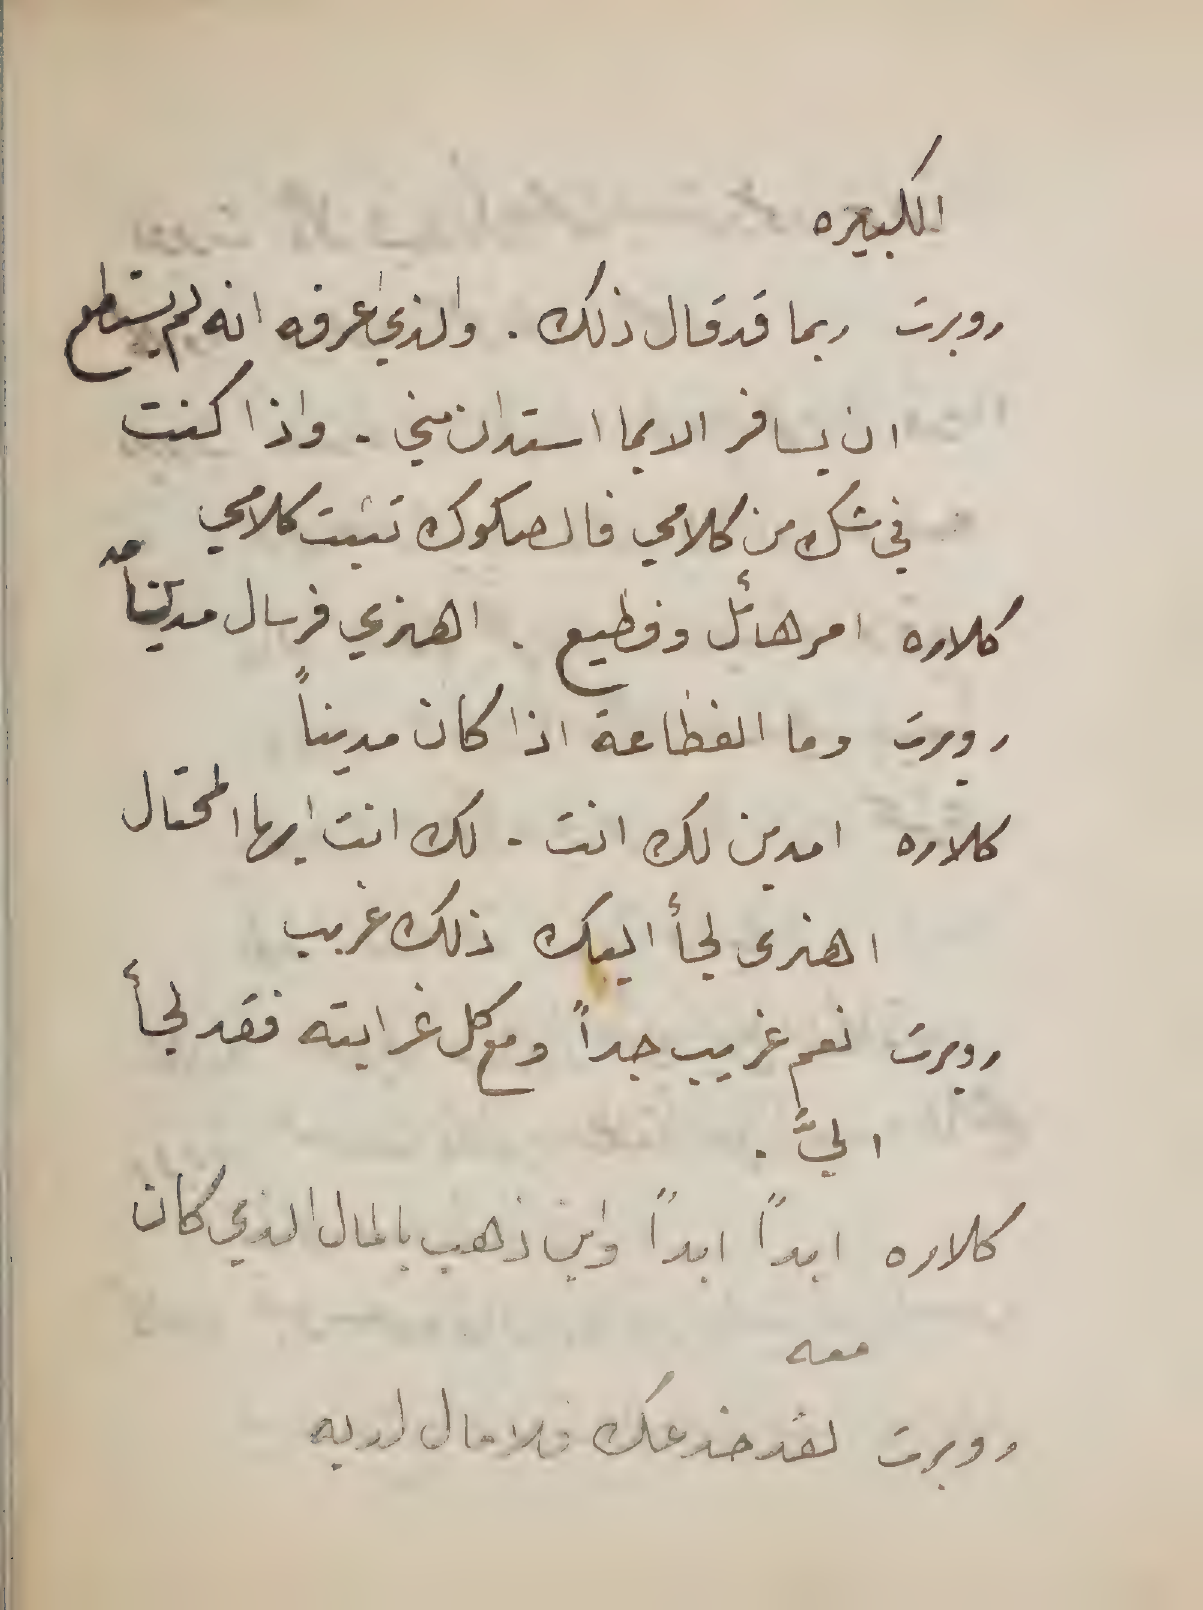 الكبيره
روبرت ربما قد قال ذلك . والذي اعرفه انه لم يستطع
ان يسافر الا بما استدان مني . واذا كنت
في شك من كلامي فالصكوك تثبت كلامي
كلاره امر هائل وفظيع . اهنري فرسال مديناً
روبرت وما الفظاعة اذا كان مديناً
كلاره امدين لك انت . لك انت ايها المحتال
اهنرى لجأ اليك ذلك غريب
روبرت نعم غريب جداً ومع كل غرابته فقد لجأ
اليَّ .
كلاره ابداً ابداً واين ذهب بالمال الذي كان
معه
روبرت لقد خدعك فلا مال لديه